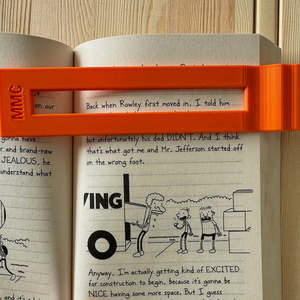 MMC
on our
gonna have
er and brand-new
JEALOUS, he
understand what
and it's a
Back when Rowley first moved in, I told him
but unfortunately his dad DIDN'T. And I think
that's what got me and Mr. Jefferson started off
on the wrong foot.
VING
O
Anyway, I'm actually getting kind of EXCITED
for construction to begin, because it's gonna be
NICE having some more space. But I guess